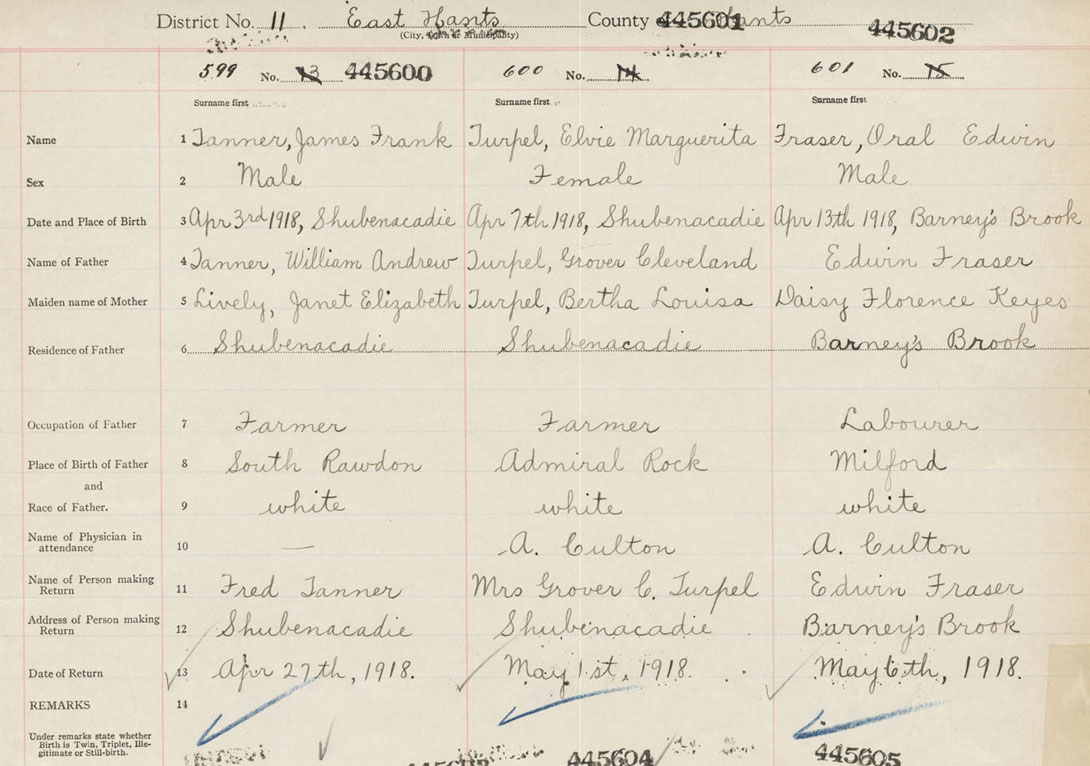 District No. 11 East Hants County Hants 445601 445602
(City, Town or Municipality)
599 No. 13 445600 600 No. 14 601 No. 15
Surname first Surname first Surname first
Name 1 Tanner, James Frank Turpel, Elvie Marguerita Fraser, Oral Edwin
Sex 2 Male Female Male
Date and Place of Birth 3 Apr 3rd 1918, Shubenacadie Apr 7th 1918, Shubenacadie Apr 13th 1918, Barney's Brook
Name of Father 4 Tanner, William Andrew Turpel, Grover Cleveland Edwin Fraser
Maiden name of Mother 5 Lively, Janet Elizabeth Turpel, Bertha Louisa Daisy Florence Keyes
Residence of Father 6 Shubenacadie Shubenacadie Barney's Brook
Occupation of Father 7 Farmer Farmer Labourer
Place of Birth of Father 8 South Rawdon Admiral Rock Milford
and
Race of Father. 9 white white white
Name of Physician in
attendance 10 — A. Culton A. Culton
Name of Person making
Return 11 Fred Tanner Mrs Grover C. Turpel Edwin Fraser
Address of Person making
Return 12 Shubenacadie Shubenacadie Barney's Brook
Date of Return 13 Apr 27th, 1918. May 1st, 1918. May 6th, 1918.
REMARKS 14
Under remarks state whether
Birth is Twin, Triplet, Ille-
gitimate or Still-birth.
445604 445605